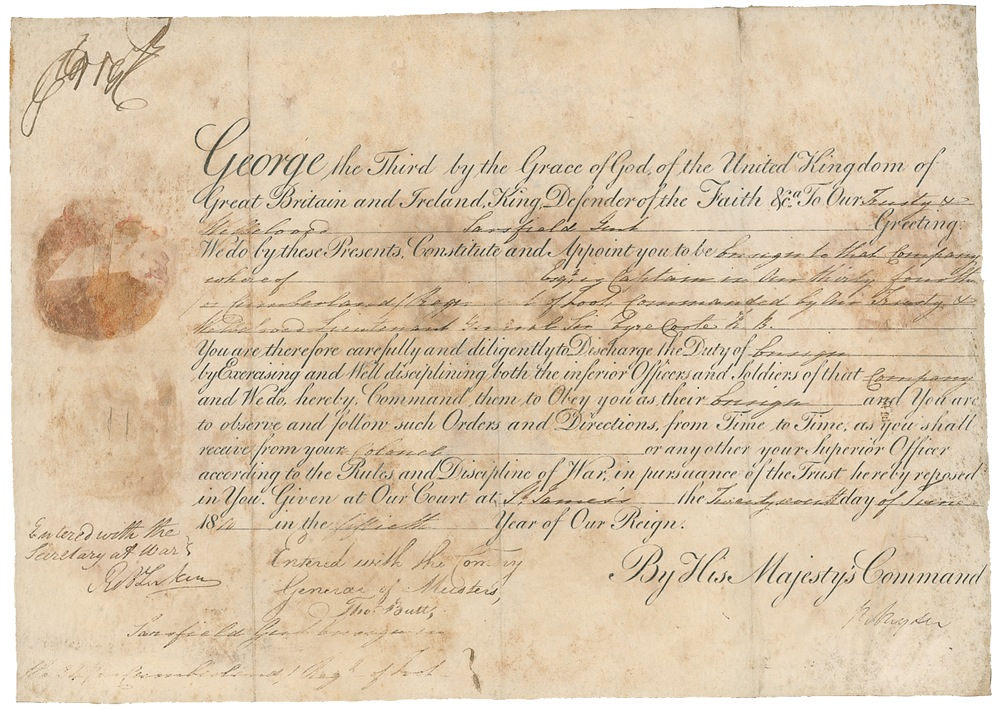 George the Third by the Grace of God, of the United Kingdom of
Great Britain and Ireland, King, Defender of the Faith &c.a To Our Trusty &
Welbeloved Sarsfield Gent Greeting:
We do by these Presents, Constitute and Appoint you to be Ensign to that Company
whereof Esqr. is Captain in Our Thirty fourth
or Cumberland / Regiment of Foot, Commanded by Our Trusty &
Welbeloved Lieutenant General Sir Eyre Coote K. B.
You are therefore carefully and diligently to Discharge the Duty of Ensign
by Exercising and Well disciplining both the inferior Officers and Soldiers of that Company
and We do, hereby, Command them to Obey you as their Ensign and You are
to observe and follow such Orders and Directions, from Time to Time, as you shall
receive from your Colonel or any other your Superior Officer
according to the Rules and Discipline of War, in pursuance of the Trust hereby reposed
in You. Given at Our Court at St. James's the day of June
18 in the fiftieth Year of Our Reign.
By His Majesty's Command
Entered with the
Secretary at War
Entered with the Comy
General of Musters,
Thos. Butt,
Sarsfield Gent Ensign in
the 34 (or Cumberland) Regt. of Foot